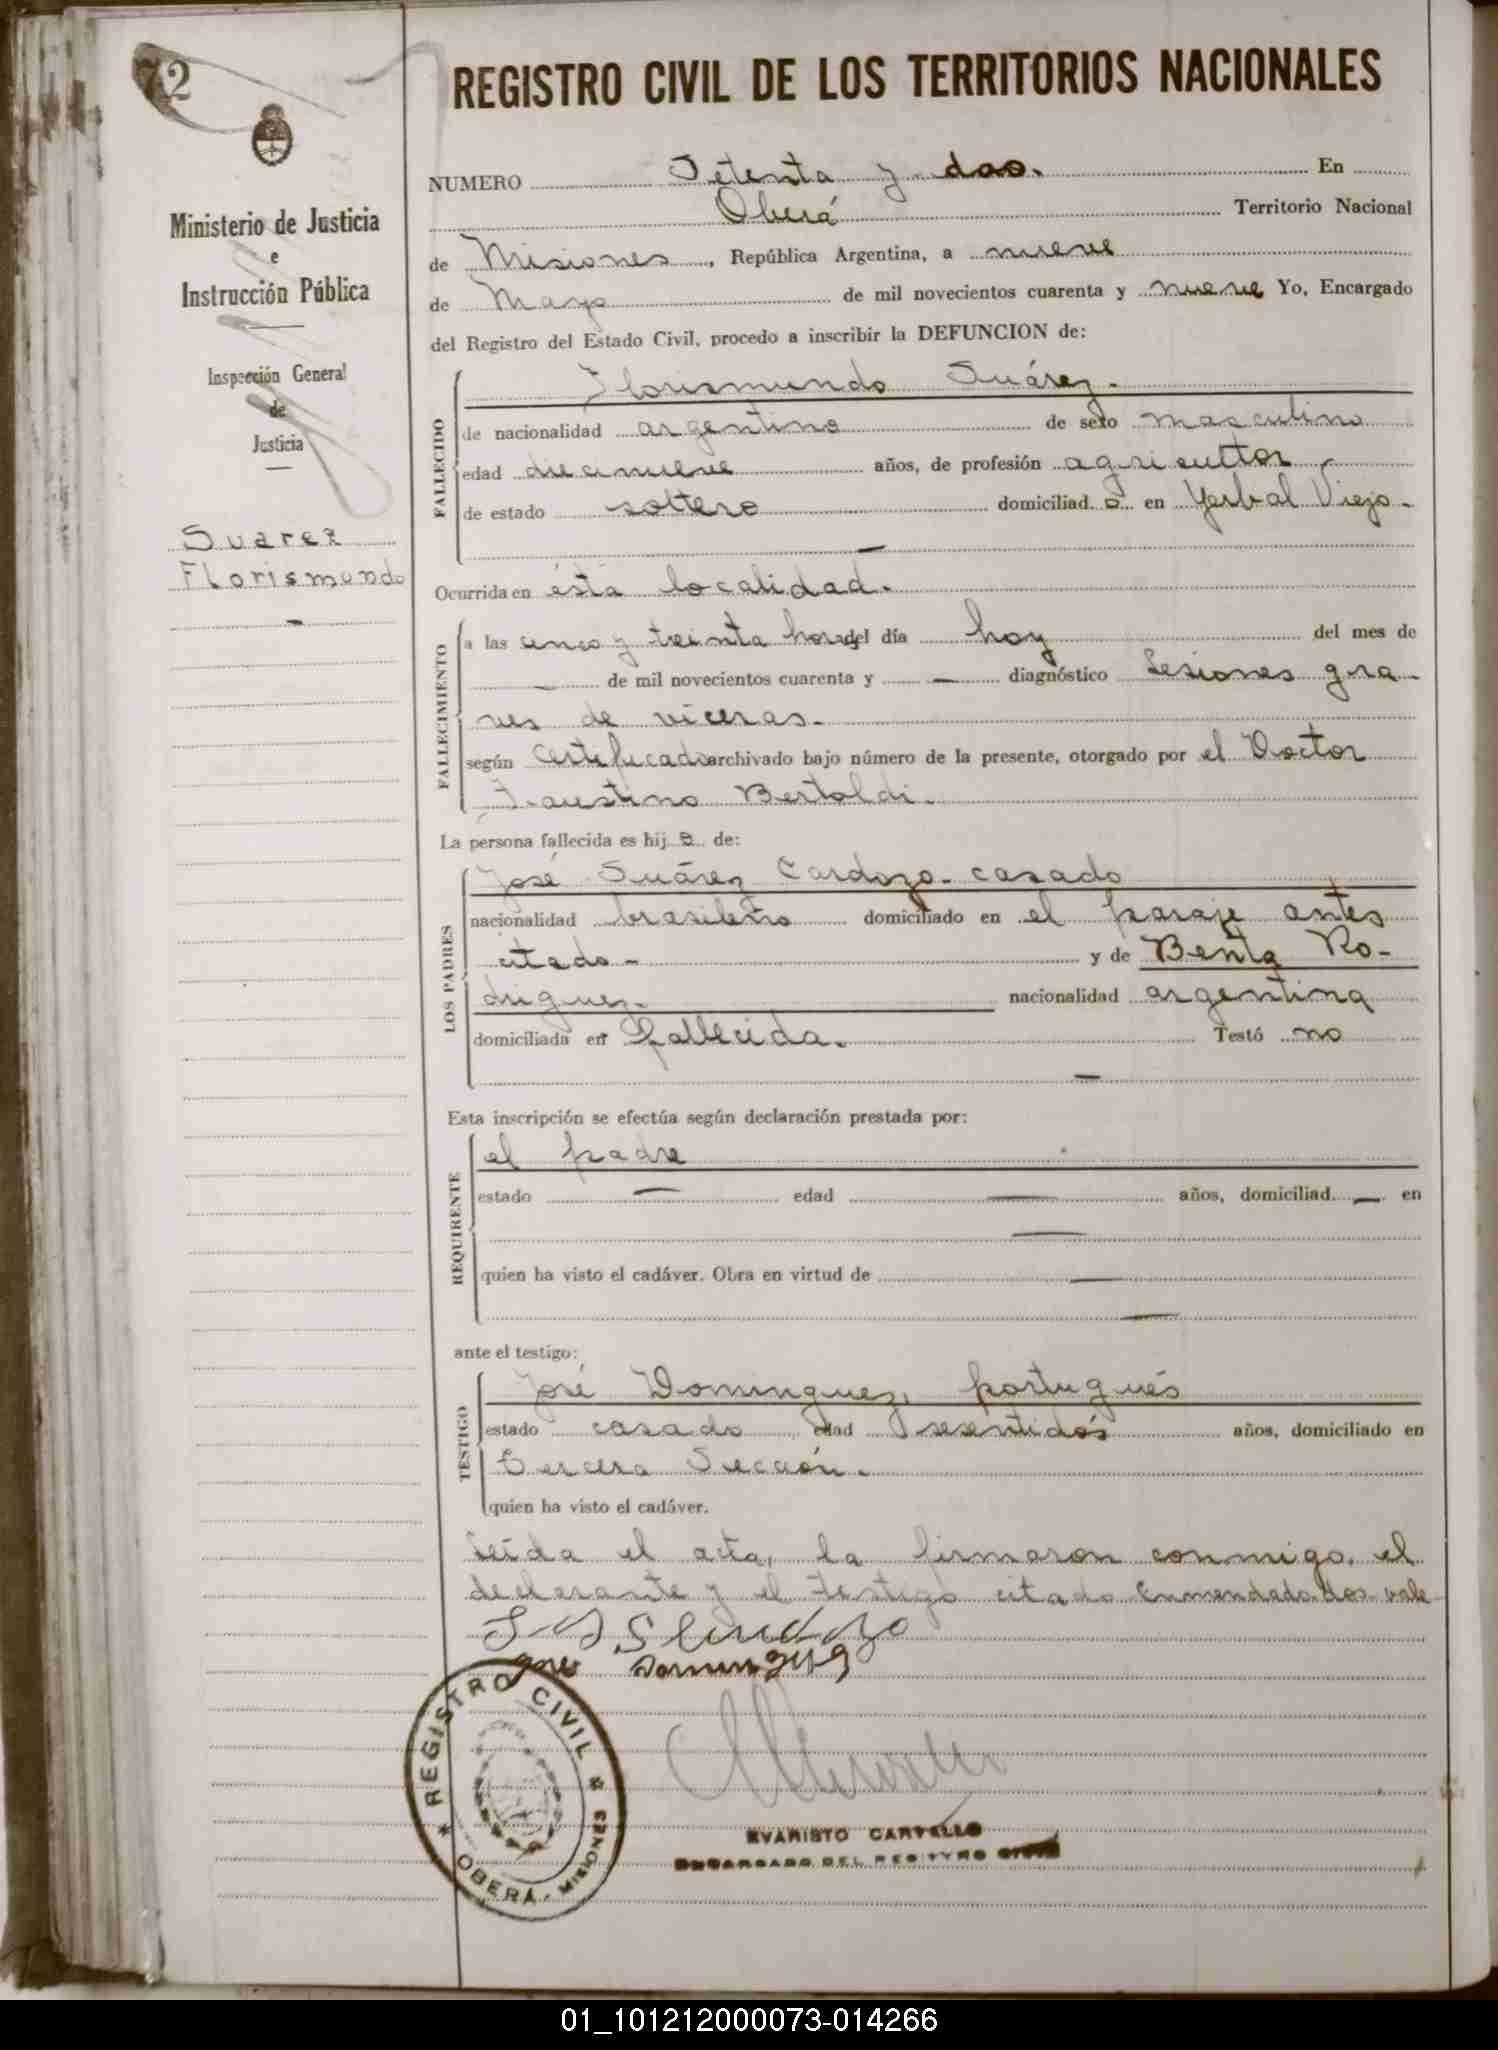 72
REGISTRO CIVIL DE LOS TERRITORIOS NACIONALES
Ministerio de Justicia
e
Instrucción Pública
Inspección General
de
Justicia
Suarez
Florismundo
NUMERO Setenta y dos. En
Oberá Territorio Nacional
de Misiones, República Argentina, a nueve
de Mayo de mil novecientos cuarenta y nueve Yo, Encargado
del Registro del Estado Civil, procedo a inscribir la DEFUNCION de:
FALLECIDO
Florismundo Suárez.
de nacionalidad argentino de sexo masculino
edad diecinueve años, de profesión agricultor
de estado soltero domiciliad o en Yerbal Viejo.
Ocurrida en ésta localidad.
FALLECIMIENTO
a las cinco y treinta horas del día hoy del mes de
— de mil novecientos cuarenta y — diagnóstico Lesiones gra-
ves de víceras.
según Certificado archivado bajo número de la presente, otorgado por el Doctor
Faustino Bertoldi.
La persona fallecida es hij o de:
LOS PADRES
José Suárez Cardozo - casado
nacionalidad brasileño domiciliado en el paraje antes
citado - y de Benta Ro-
driguez. nacionalidad argentina
domiciliada en fallecida. Testó no
—
Esta inscripción se efectúa según declaración prestada por:
REQUIRENTE
el padre
estado — edad — años, domiciliad — en
—
quien ha visto el cadáver. Obra en virtud de —
—
ante el testigo:
TESTIGO
José Dominguez, portugués
estado casado edad sesentidós años, domiciliado en
Tercera Sección.
quien ha visto el cadáver.
Leída el acta, la firmaron conmigo, el
declarante y el testigo citado Enmendado: dos vale
Jose Dominguez
REGISTRO CIVIL
OBERÁ - MISIONES
EVARISTO CARVALLO
ENCARGADO DEL REGISTRO CIVIL
01_101212000073-014266